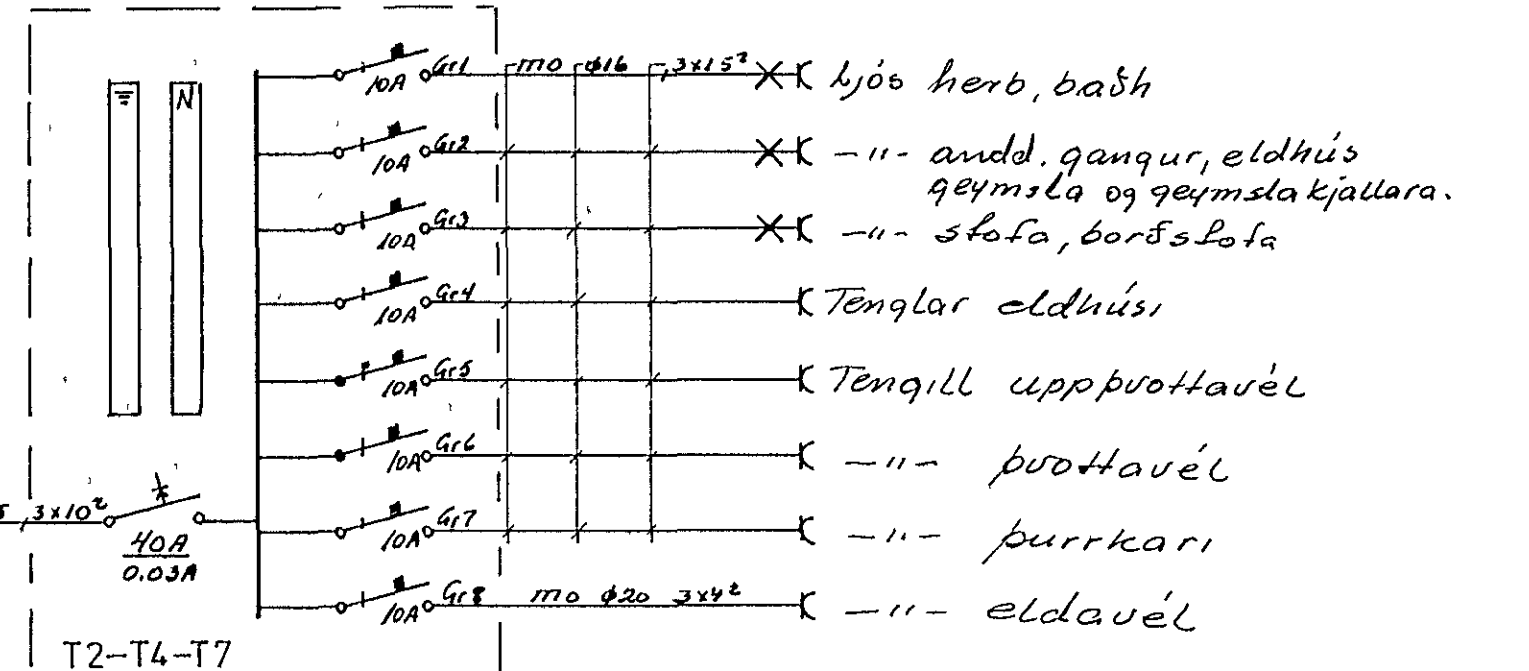 Gr1 mo ϕ16 3x15² Ljós herb, baðh
10A
N
Gr2 -"- andd. gangur, eldhús
10A
geymsla og geymsla kjallara.
Gr3 -"- stofa, borðstofa
10A
Gr4 Tenglar eldhúsi
10A
Gr5 Tengill uppþvottavél
10A
Gr6 -"- þvottavél
10A
3x10² Gr7 -"- þurrkari
10A
40A
0.03A
Gr8 mo ϕ20 3x4² -"- eldavél
10A
T2-T4-T7